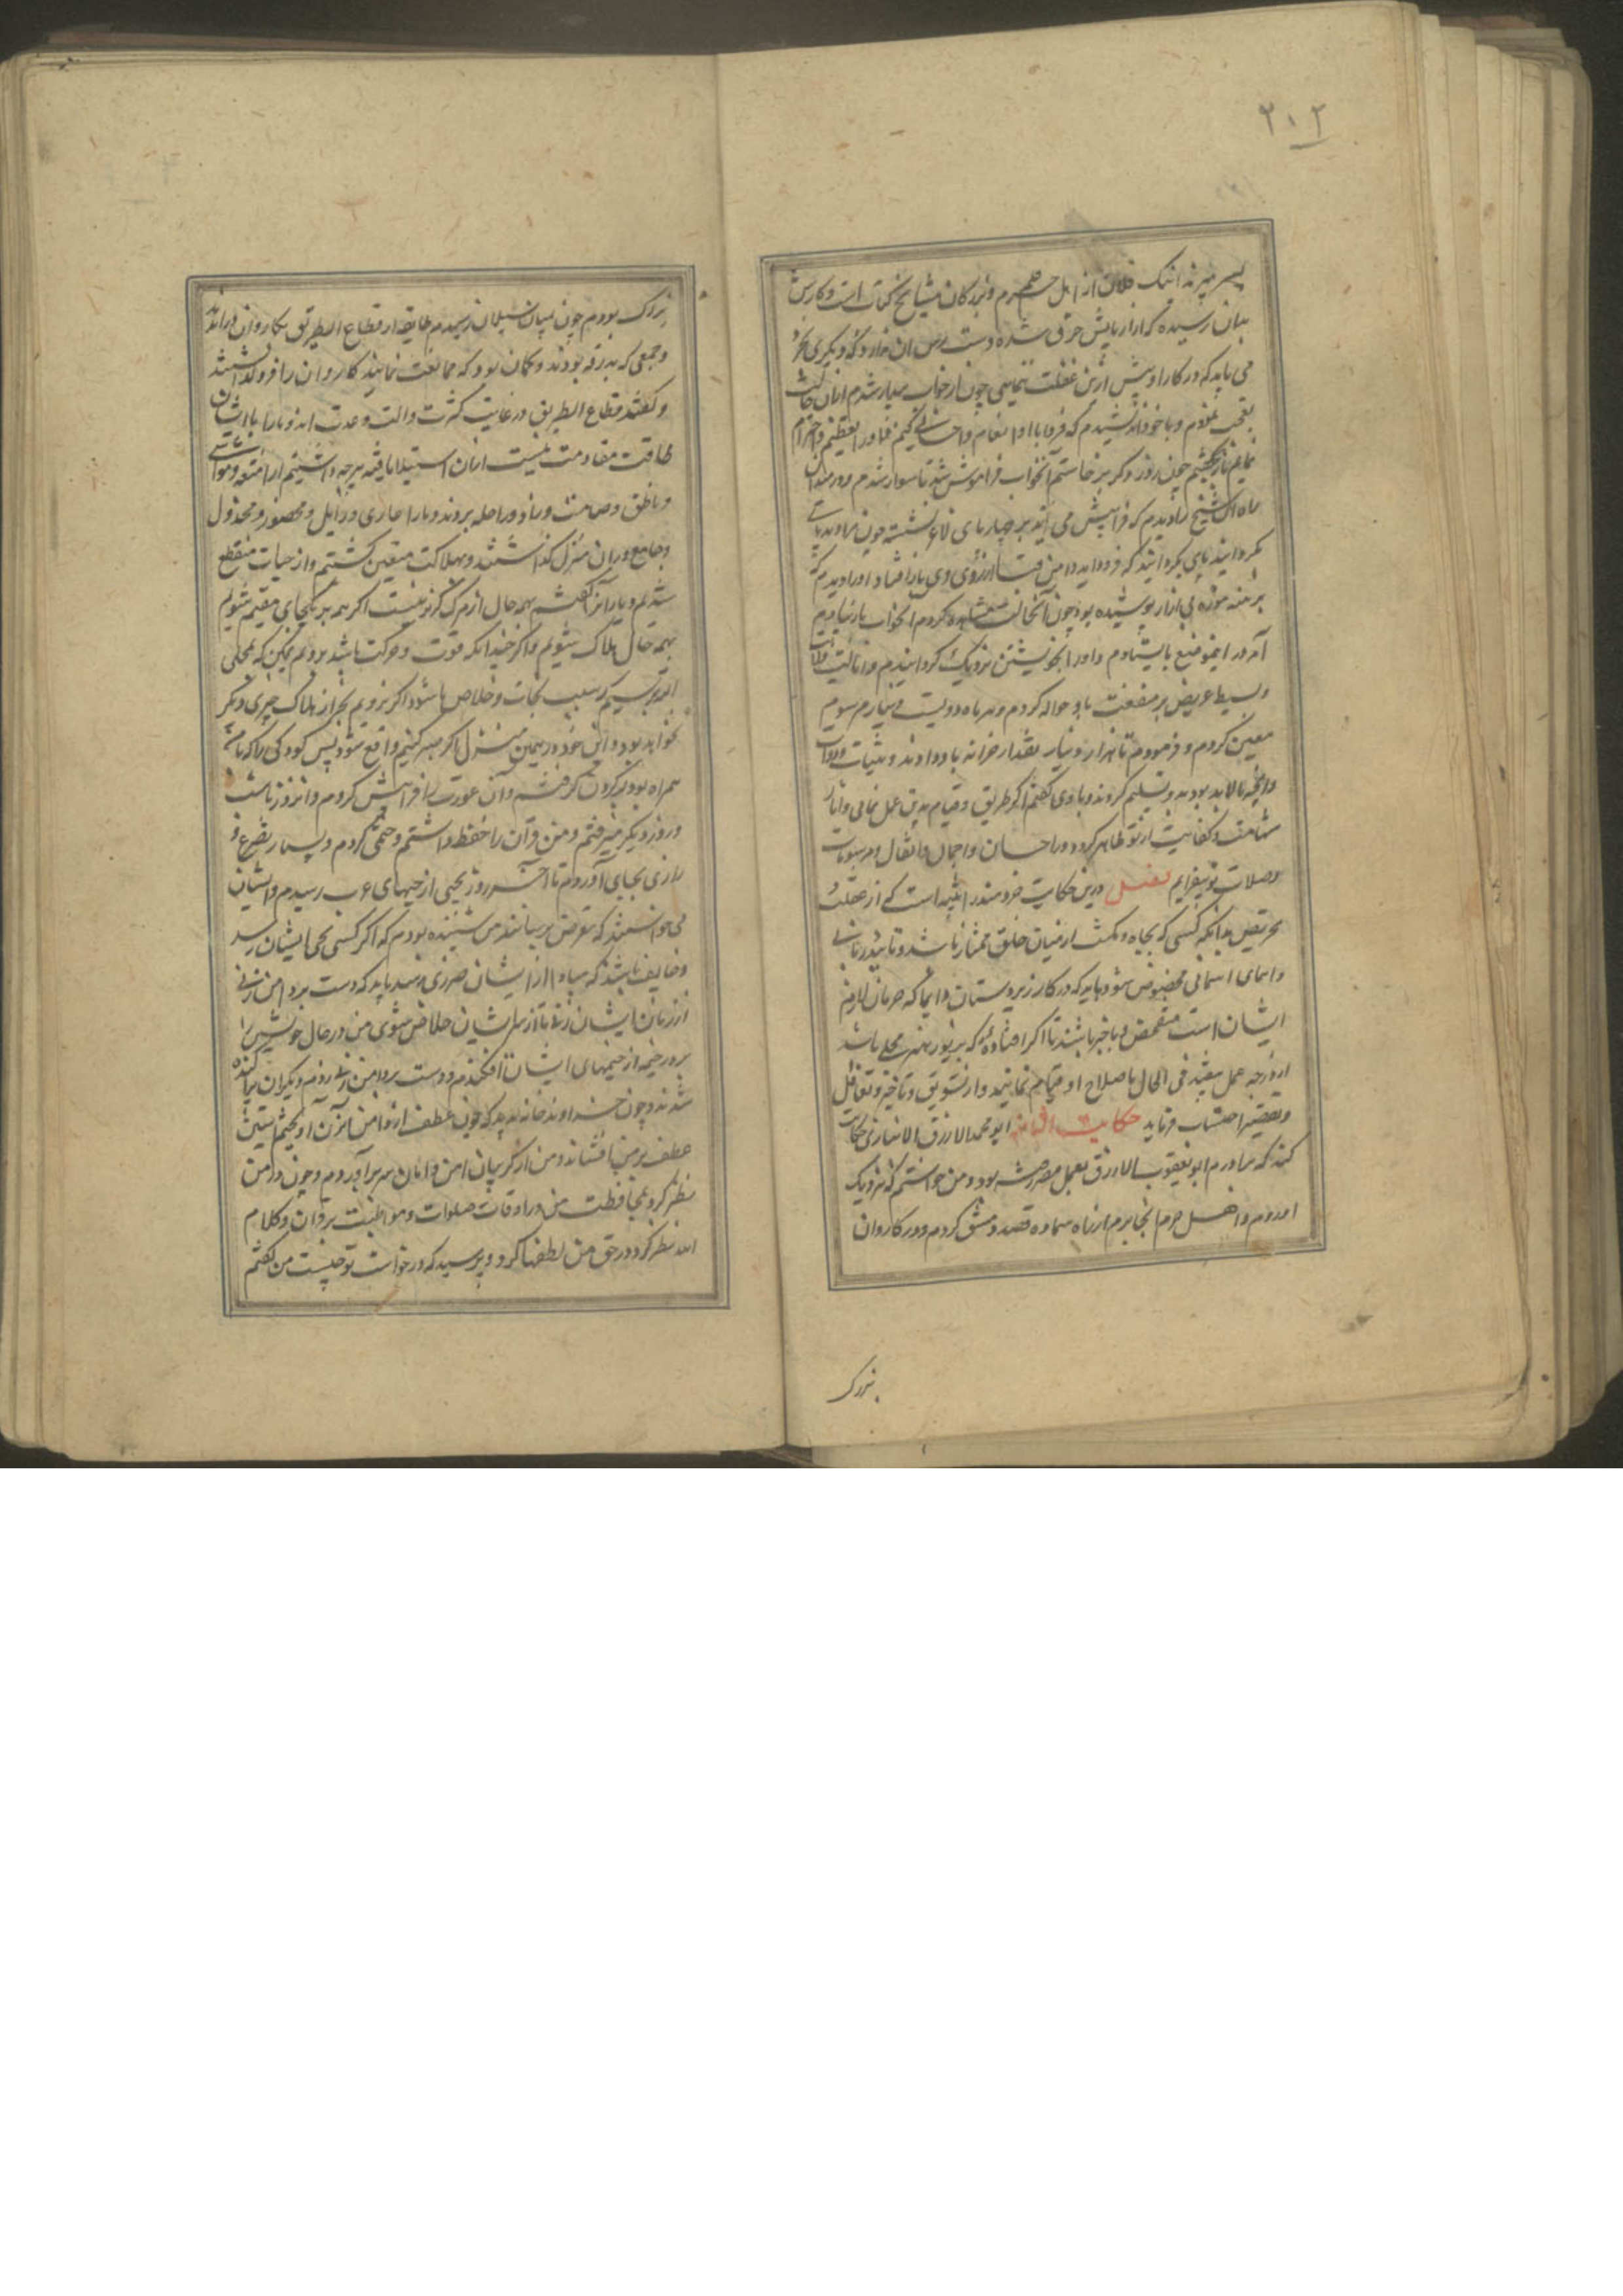 ۲۰۲
پسر میزند اینک فلان از اهل حرم و بزرگان مشایخ کتاب است و کارش
بدان رسیده که ازار پایش خرق شده و دست رس آن ندارد که دیگری بخرد
می باید که در کار او پیش ازین غفلت ننمایی چون از خواب بیدار شدم از آن حالت
تعجب نمودم و با خود اندیشیدم که فردا با او انعام و احسانی کنم و او را تعظیم و احترام
نمایم چون روز دیگر برخاستم آن خواب فراموش شد تا سوار شدم و در میدان
راه آن شیخ را دیدم که فرا پیش می آید بر چهارپای لاغر نشسته چون مرا دید پای
بگردانید که فرود آید دامن قبا از روی وی باز افتاد او را دیدم که
برهنه موزه بی ازار پوشیده بود چون آن حالت مشاهده کردم آن خواب با یادم
آمد در آن موضع بایستادم و او را بخویشتن نزدیک گردانیدم و
بسیط عریض پر منفعت باو حواله کردم و هر ماه دویست دینار مرسوم
معین کردم و فرمودم تا هزار دینار نقد از خزانه باو دادند و ثیاب و دواب
و آنچه ما لابد بود بدو تسلیم کردند و با وی گفتم اگر طریق و قیام بدین عمل نمایی و آثار
شهامت و کفایت از تو ظاهر گردد در احسان و اجمال و
و صلات تو بیفزایم فصل درین حکایت خردمند را تنبیه است که از غفلت
تحریض بدانکه کسی که بجاه و مکنت از میان خلق ممتاز باشد و بتایید ربانی
و آسمانی مخصوص شود باید که در کار زیردستان دایما که حرمان لازم
ایشان است متفحص و باخبر باشند تا اگر افتاده که بزیور هنر محلی باشد
از درجه عمل بیفتد فی الحال باصلاح او قیام نمایند و از تسویق و تاخیر و تغافل
و تقصیر اجتناب فرماید حکایت ابو محمد الازرق الانباری حکایت
کند که برادرم ابو یعقوب الازرق بعمل مصر رفته بود و من خواستم که نزدیک
او روم و اهل حرم آنجا برم از راه سماوه قصد دمشق کردم و در کاروان
بزرگ
بزرگ بودم چون بمیان رسیدم طایفه از قطاع الطریق بکاروان در آمدند
و جمعی که بدرقه بودند و گمان بود که ممانعت نمایند کاروان را فرو گذاشتند
و گفتند قطاع الطریق در غایت کثرت و آلت و عدت اند و ما را با ایشان
طاقت مقاومت نیست ایشان استیلا یافته هرچه داشتیم از امتعه و مواشی
و ناطق و صامت و زاد و راحله بردند و ما را
در آن منزل گذاشتند و بهلاکت متیقن گشتم و از حیات منقطع
شدیم و یاران را گفتم بهمه حال از مرگ گریز نیست اگر همه بر یکجای مقیم شویم
بهمه حال هلاک شویم و اگر چندانکه قوت و حرکت باشد برویم ممکن که بمحلی
رسیم که سبب نجات و خلاص ما شود و اگر نرویم بجز از هلاک چیزی دیگر
نخواهد بود و این خود در همین منزل اگر صبر کنیم واقع شود پس کودکی را که با من
همراه بود بر گردن گرفتم و آن عورت را فرا پیش کردم و آنروز تا شب
و روز دیگر میرفتم و من قرآن را حفظ داشتم و ختمی کردم و بسیار تضرع و
زاری بجای آوردم تا آخر روز بحیی از حیهای عرب رسیدم و ایشان
می خواستند که تعرض برسانند من شنیده بودم که اگر کسی بحی ایشان رسد
و خایف باشد که مبادا از ایشان ضرری رسد باید که دست بر دامن زنی
از زنان ایشان زند تا از شر ایشان خلاص شوی من در حال خویشتن را
بر در خیمه از خیمهای ایشان افکندم و دست در دامن زنی زدم دیگران پراکنده
شدند و چون خداوند خانه بدید که چون عطف از دامن آن زن آویختم آستین
عطف بر من افشاند و من از گریبان امن و امان سر بر آوردم و چون در من
نظر کرد بمحافظت من در اوقات صلوات و مواظبت بر قرآن و کلام
الله نظر کرد در حق من لطفها کرد و پرسید که درخواست تو چیست من گفتم